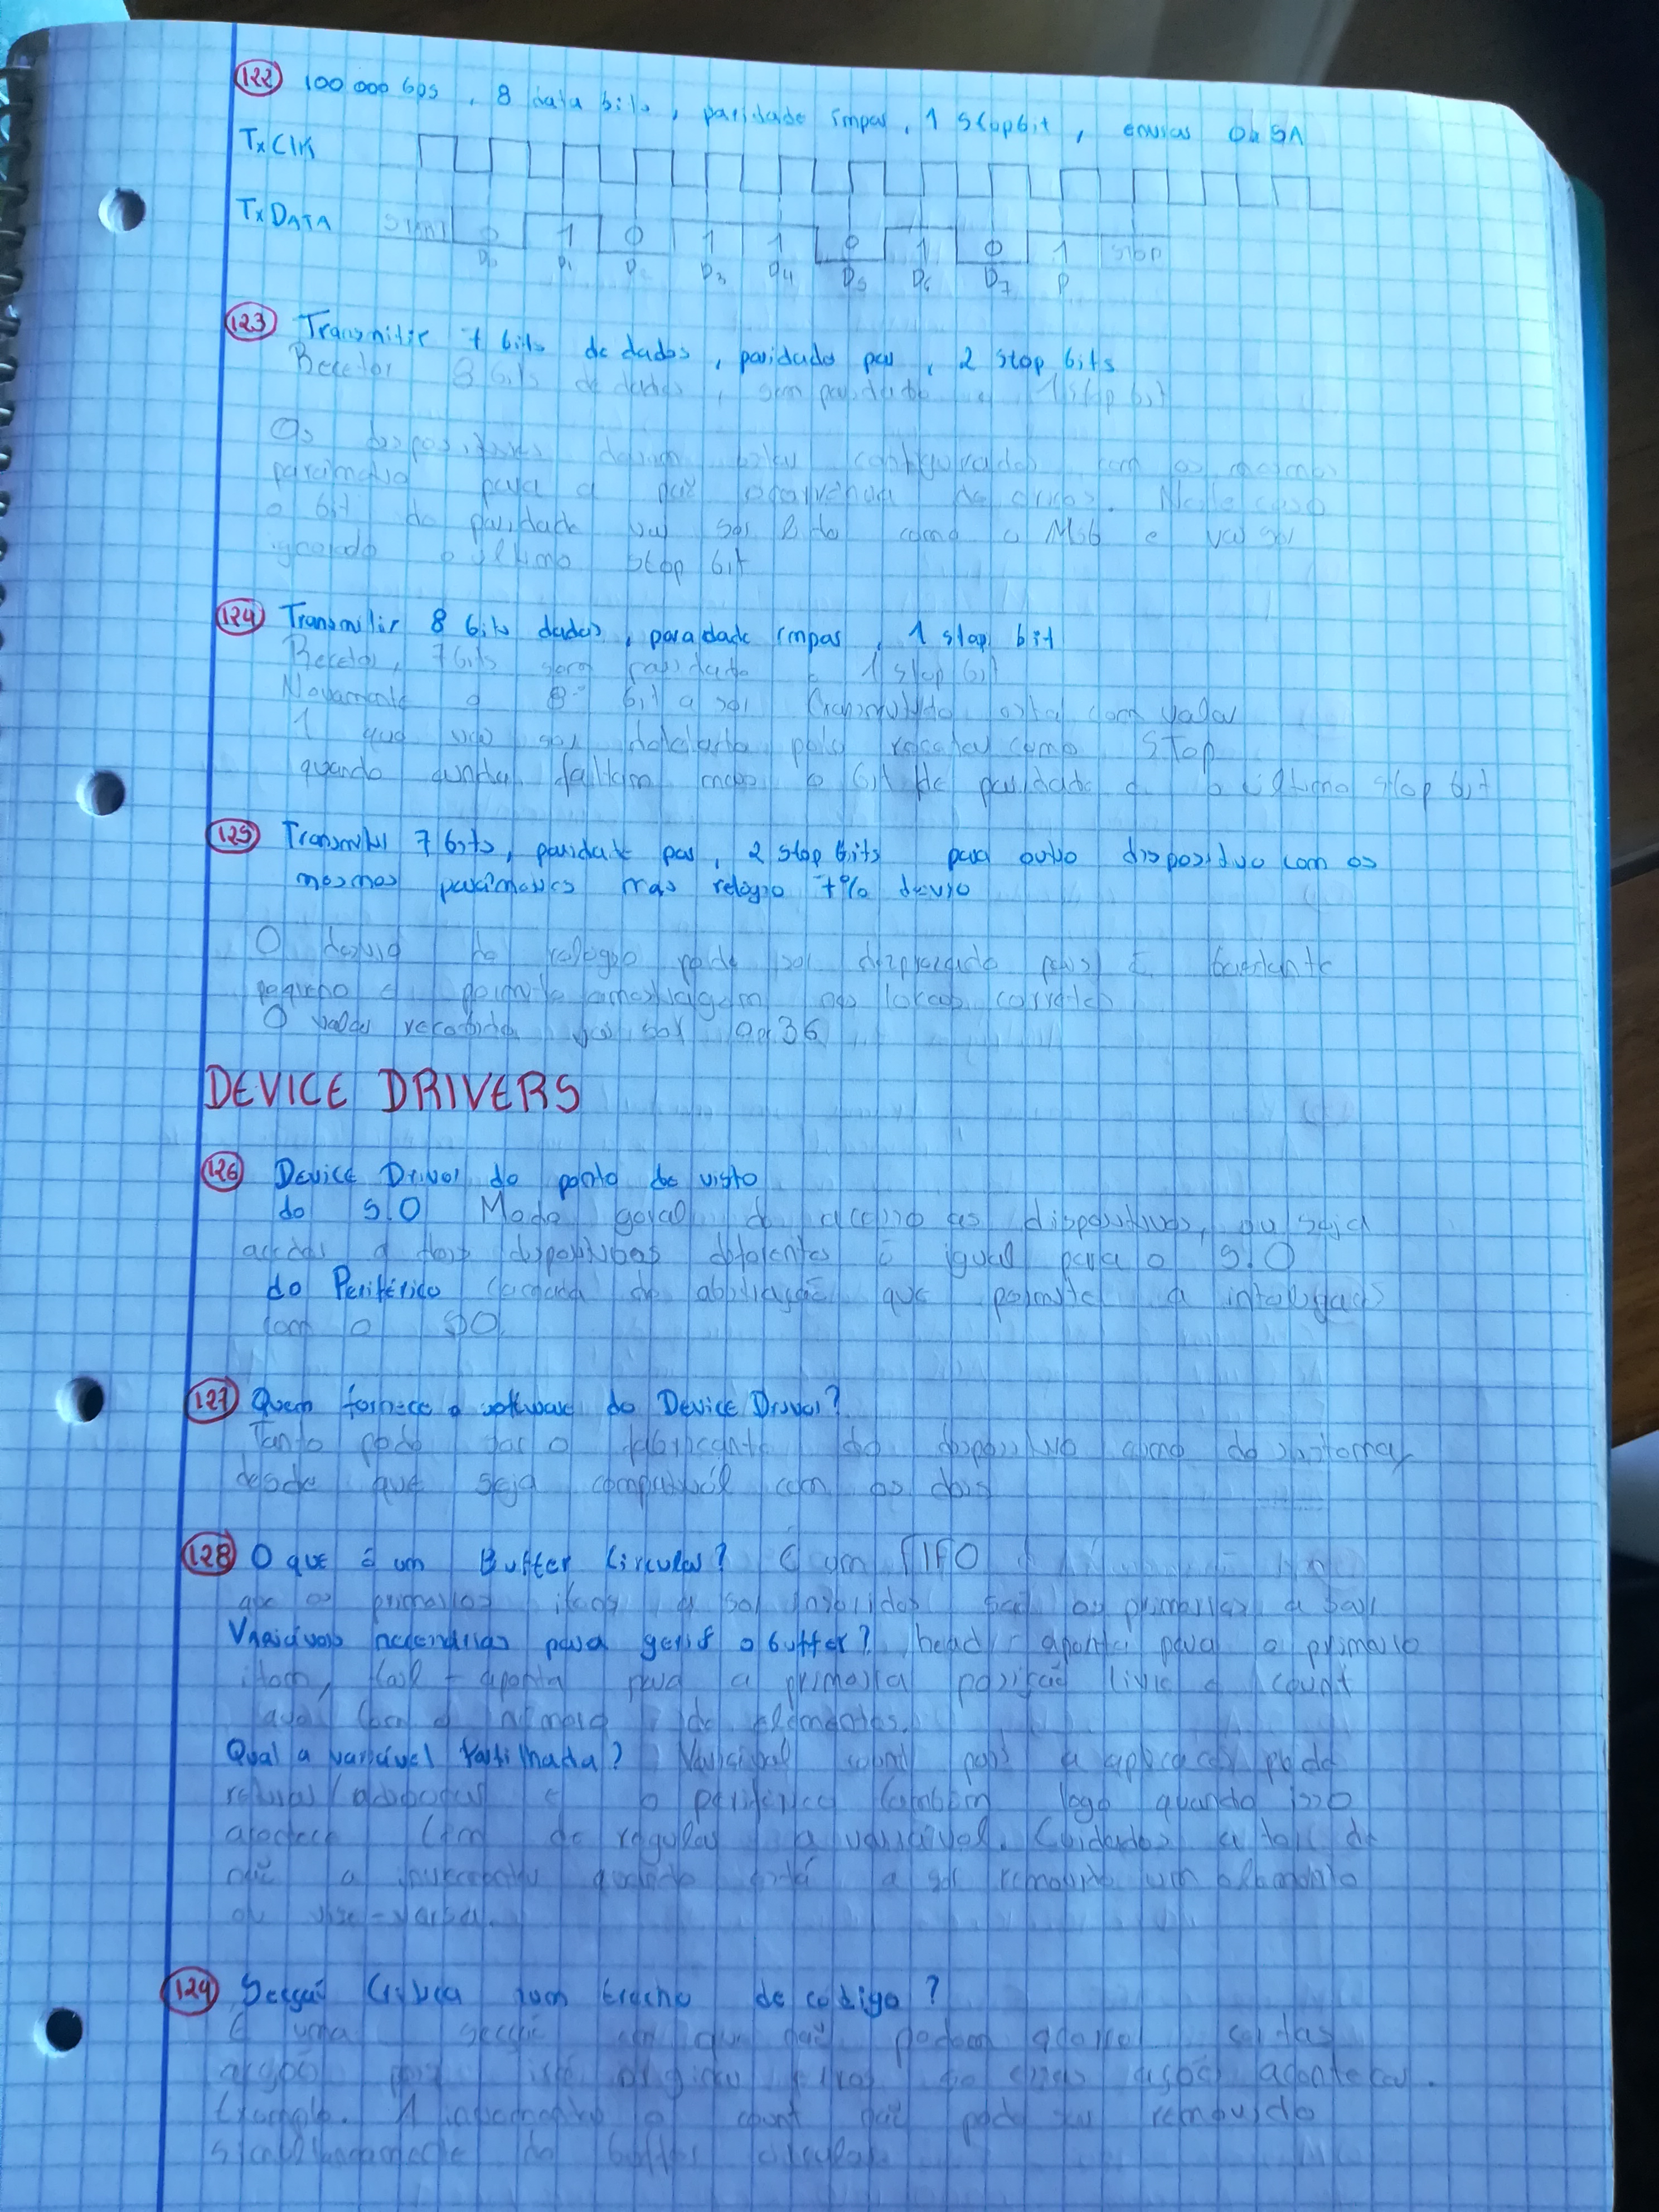 122 100 000 bps, 8 data bits, paridade ímpar, 1 stop bit, enviar 0x5A
TxCLK
TxDATA START 0 1 0 1 1 0 1 0 1 stop
D0 D1 D2 D3 D4 D5 D6 D7 P
123 Transmitir 7 bits de dados, paridade par, 2 stop bits
Recetor 8 bits de dados, sem paridade e 1 stop bit
Os dispositivos devem estar configurados com os mesmos
parâmetro para q não ocorrência de erros. Neste caso
o bit de paridade vai ser lido como o Msb e vai ser
ignorado o último stop bit
124 Transmitir 8 bits dados, paradade ímpar, 1 stop bit
Recetor, 7 bits sem paridade e 1 stop bit
Novamente o 8º bit a ser transmitido está com valor
1 que vai ser detetado pelo recetor como STOP
quando ainda faltam mais o bit de paridade e o último stop bit
125 Transmitir 7 bits, paridade par, 2 stop bits para outro dispositivo com os
mesmos parâmetros mas relógio 7% desvio
O desvio do relógio pode ser desprezado pois é bastante
pequeno e permite amostragem nos locais corretos
O valor recebido vai ser 0x36
DEVICE DRIVERS
126 Device Driver do ponto de visto
do S.O Modo geral de acesso aos dispositivos, ou seja
aceder a dois dispositivos diferentes é igual para o S.O
do Periférico camada de abstração que permite a interligação
com o SO.
127 Quem fornece o software do Device Driver?
Tanto pode ser o fabricante do dispositivo como do sistema,
desde que seja compatível com os dois
128 O que é um Buffer Circular? É um FIFO
que os primeiros itens a ser inseridos são os primeiros a sair
Variáveis necendrias para gerir o buffer? head - aponta para o primeiro
item, tail - aponta para a primeira posição livre e count
que tem o número de elementos.
Qual a variável partilhada? Variável count pois a aplicação pode
e o periférico também logo quando isso
acontece tem de regular a variável. Cuidados a ter de
não a incrementar quando está a ser removido um elemento
ou vise-versa.
129 Secção Crítica num trecho de código?
É uma secção em que não podem ocorrer certas
ações pois irá originar erros se essas ações acontecer.
Exemplo. A incrementar o count não pode ser removido
simultaneamente do buffer circular